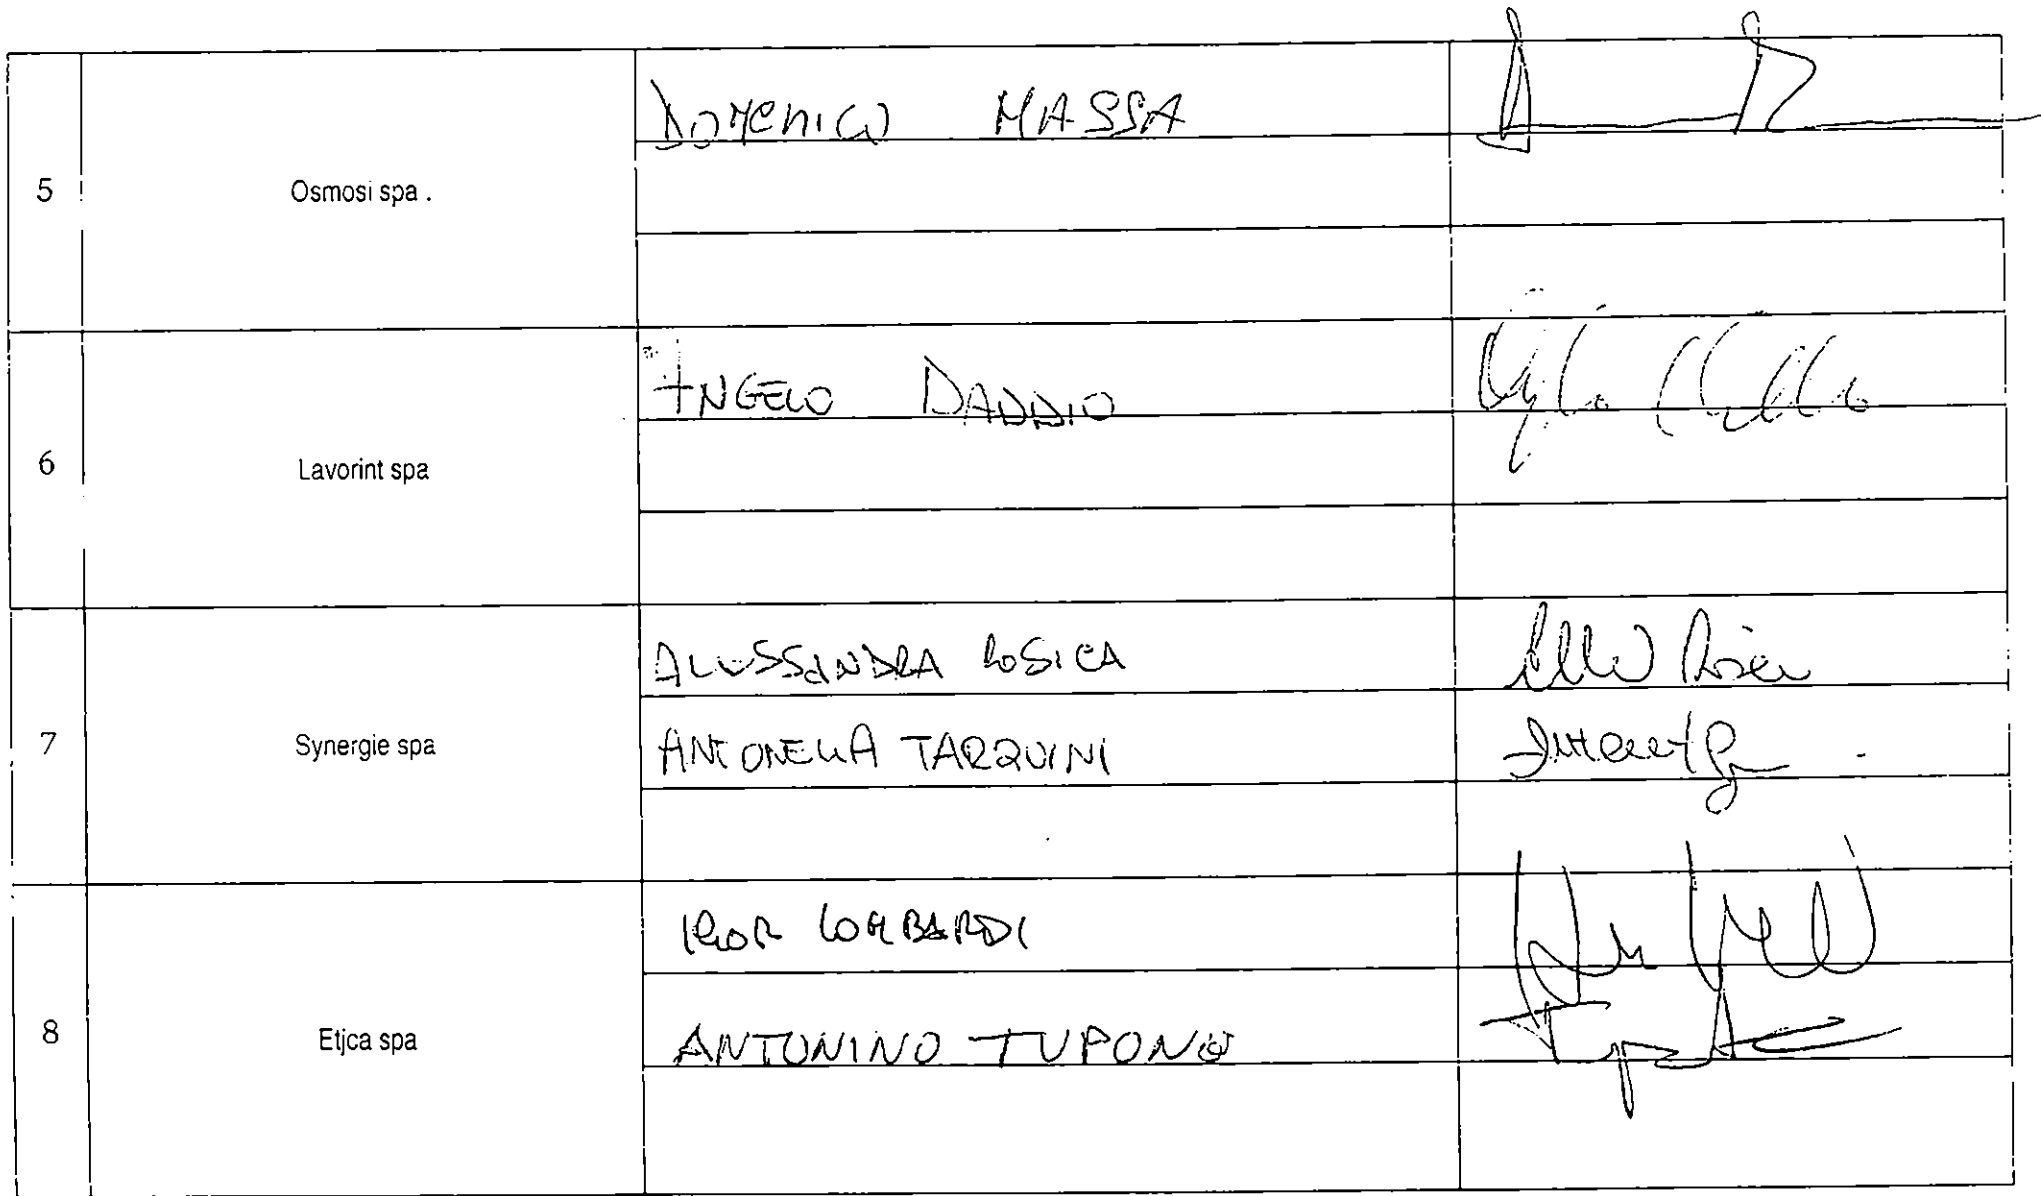 5 Osmosi spa . DOMENICO MASSA
6 Lavorint spa ANGELO DADDIO
7 Synergie spa ALESSANDRA ROSICA
ANTONELLA TARQUINI
8 Etjca spa IGOR LOMBARDI
ANTONINO TUPONE